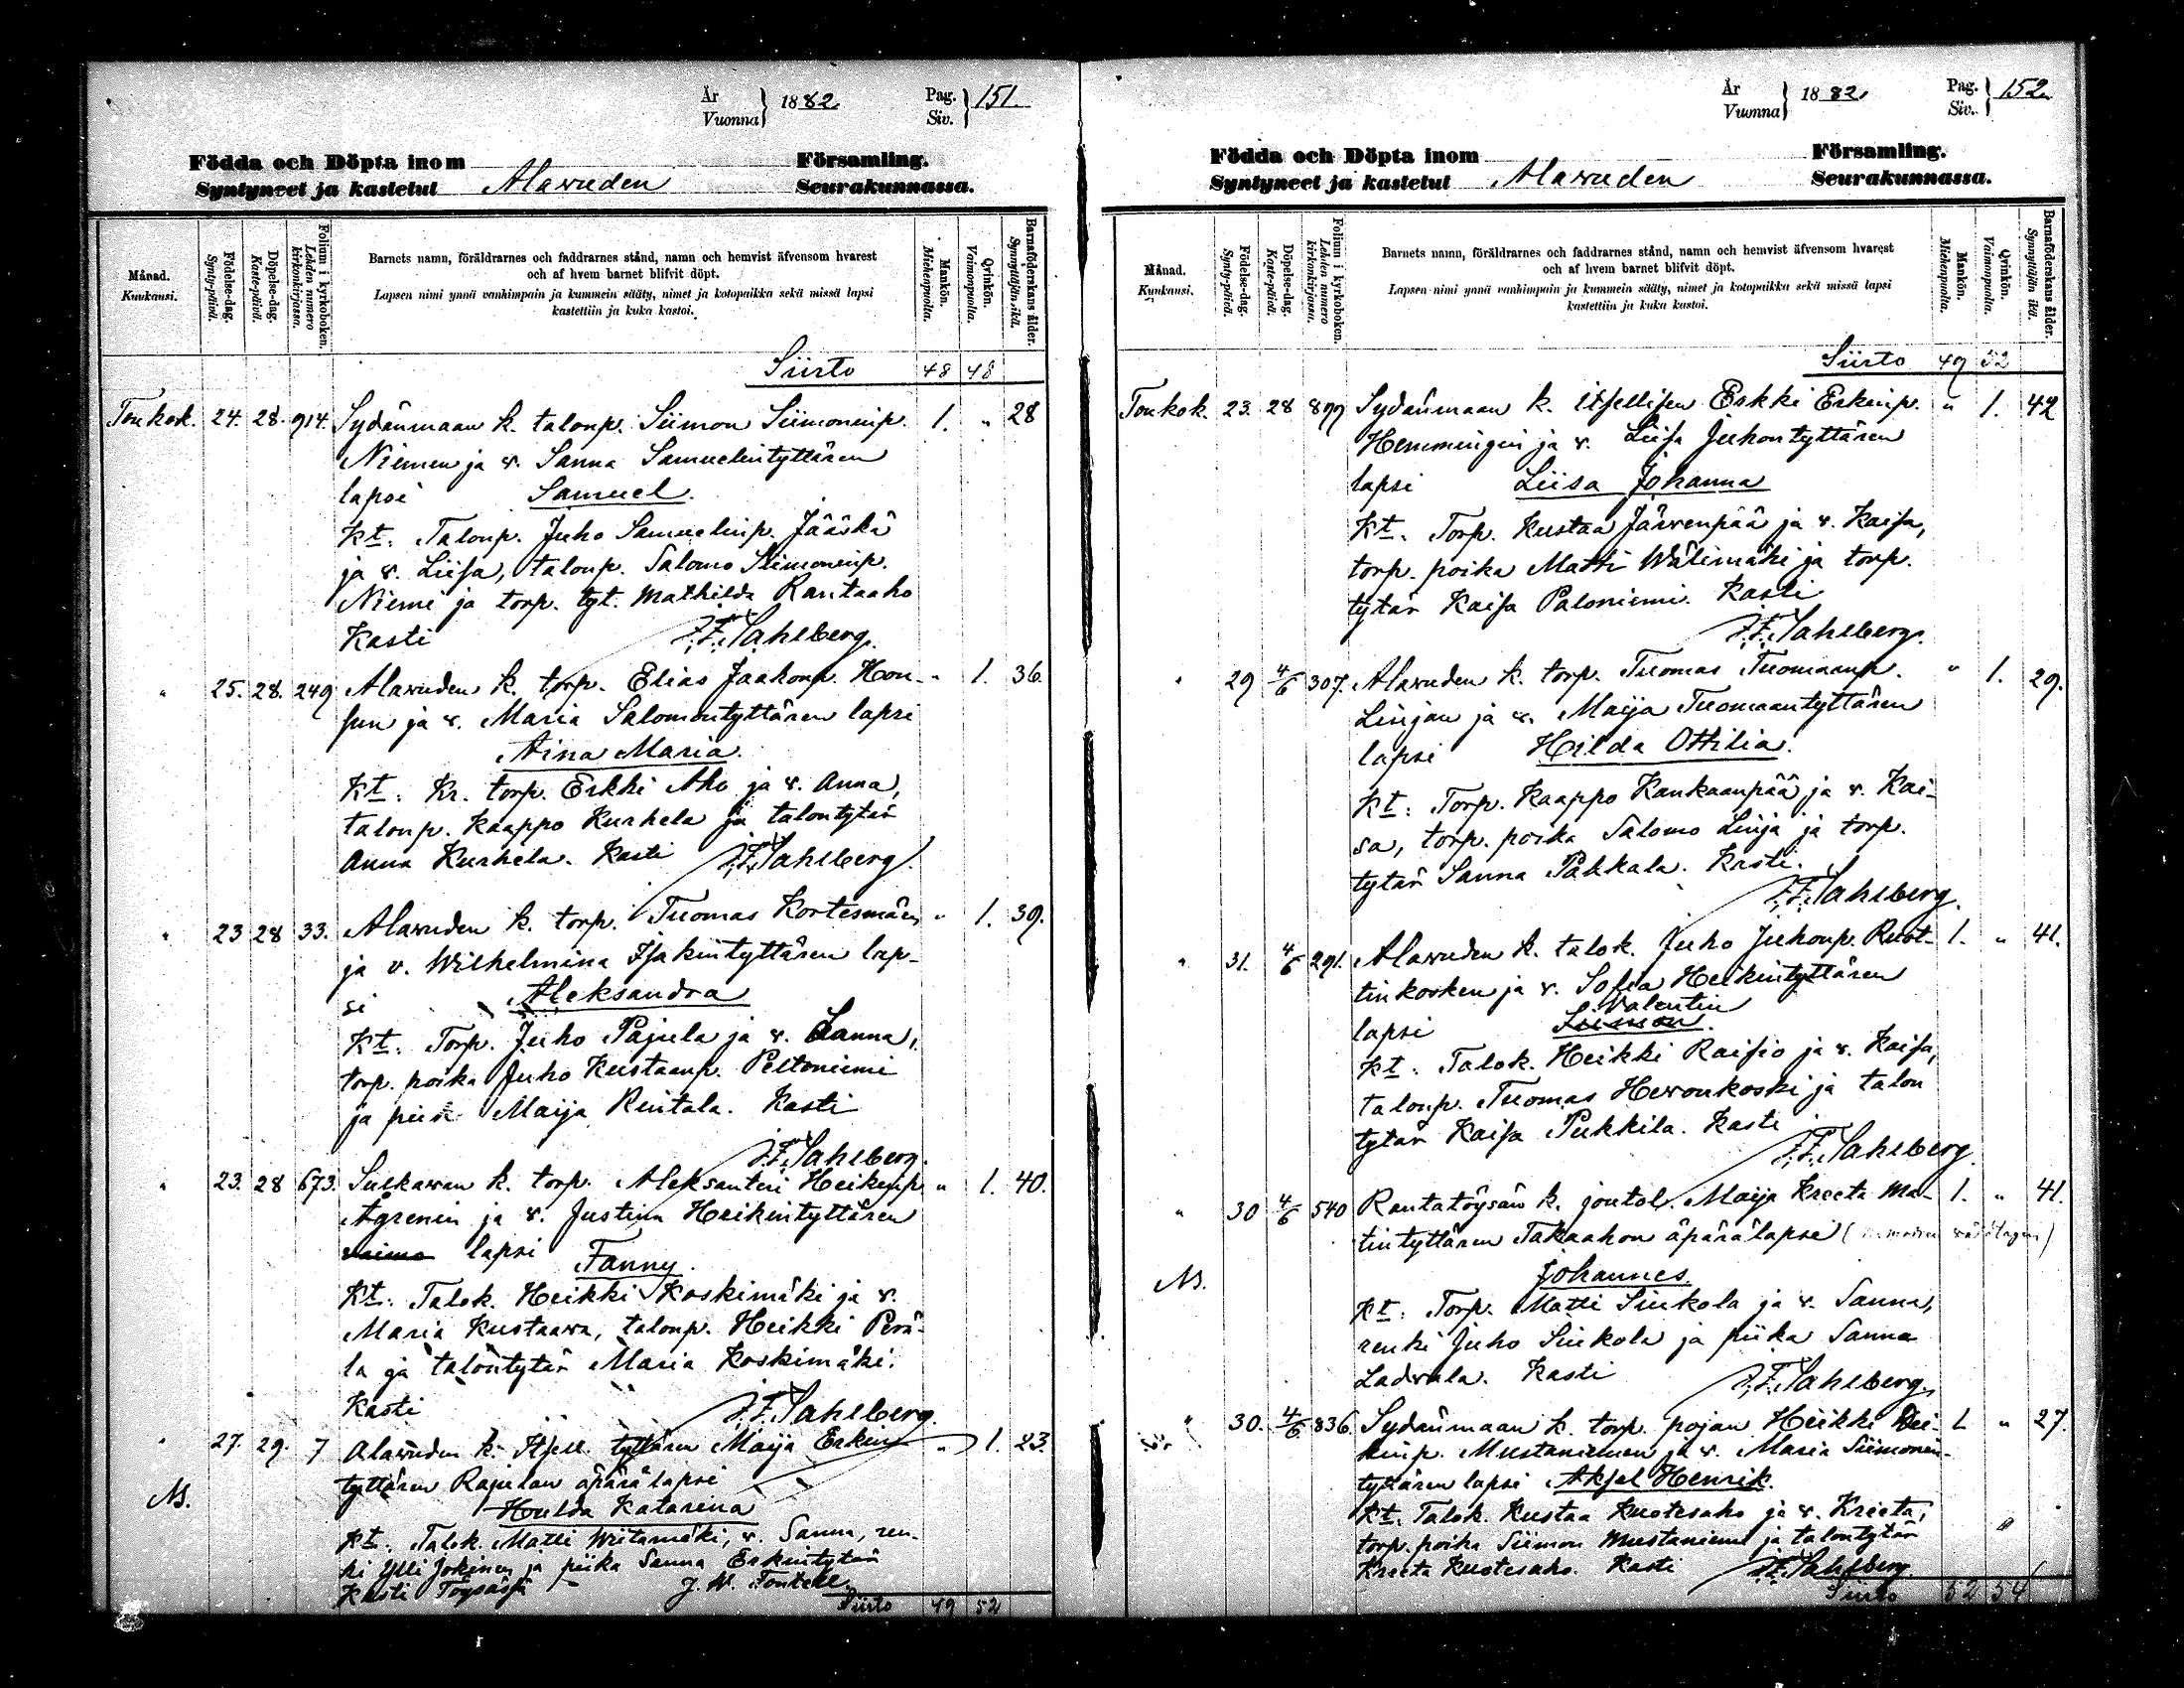 År
Vuonna
1882.
Pag.
Siv.
151.
Födda och Döpta inom
Församling.
Syntyneet ja kastetut
Alawuden
Seurakunnassa.
Månad.
Kuukausi.
Födelse-dag.
Synty-päivä.
Döpelse-dag.
Kaste-päivä.
Folium i kyrkoboken.
Lehden numero kirkonkirjassa.
Barnets namn, föräldrarnes och faddrarnes stånd, namn och hemvist äfvensom hvarest
och af hvem barnet blifvit döpt.
Lapsen nimi ynnä vanhimpain ja kummein sääty, nimet ja kotopaikka sekä missä lapsi
kastettiin ja kuka kastoi.
Mankön.
Miehenpuolta.
Qvinkön.
Vaimonpuolta.
Barnaföderskans ålder.
Synnyttäjän ikä.
Siirto 48 48
Toukok. 24. 28. 914. Sydänmaan k. talonp. Siimon Siimoninp. 1. " 28
Niemen ja v. Sanna Samuelintyttären
lapsi Samuel.
Kt. Talonp. Juho Samuelinp. Jääskä
ja v. Liisa, talonp. Salomo Siimoninp.
Niemi ja torp. tyt. Mathilda Rantaaho
Kasti J.F. Sahlberg.
" 25. 28. 249 Alawuden k. torp. Elias Jaakonp. Hon- " 1. 36.
sun ja v. Maria Salomontyttären lapsi
Aina Maria.
Kt. Kr. torp. Erkki Aho ja v. Anna,
talonp. Kaappo Kurhela ja talontytär
Anna Kurhela. Kasti J.F. Sahlberg.
" 23 28 33. Alawuden k. torp. Tuomas Kortesmäen " 1. 39.
ja v. Wilhelmina Isakintyttären lap-
si Aleksandra
Kt. Torp. Juho Pajula ja v. Sanna,
torp. poika Juho Kustaanp. Peltoniemi
ja piik. Maija Rintala. Kasti
J.F. Sahlberg.
" 23. 28 673. Sulkawan k. torp. Aleksanteri Heikinp. " 1. 40.
Ågrenin ja v. Justina Heikintyttären
vaimo lapsi Fanny.
Kt. Talok. Heikki Koskimäki ja v.
Maria Kustaawa, talonp. Heikki Perä-
la ja talontytär Maria Koskimäki.
Kasti J.F. Sahlberg.
" 27. 29. 7 Alawuden k. Itsell. tyttären Maija Erkin- " 1. 23.
tyttären Rajulan äpärälapsi
Hulda Katarina
Kt. Talok. Matti Wiitamäki, v. Sanna, ren-
ki Ylli Jokinen ja piika Sanna Erkintytär
Kasti Töysässä J. W. Fontell.
Siirto 49 52
År
Vuonna
1882.
Pag.
Siv.
152.
Födda och Döpta inom
Församling.
Syntyneet ja kastetut
Alawuden
Seurakunnassa.
Månad.
Kuukausi.
Födelse-dag.
Synty-päivä.
Döpelse-dag.
Kaste-päivä.
Folium i kyrkoboken.
Lehden numero kirkonkirjassa.
Barnets namn, föräldrarnes och faddrarnes stånd, namn och hemvist äfvensom hvarest
och af hvem barnet blifvit döpt.
Lapsen nimi ynnä vanhimpain ja kummein sääty, nimet ja kotopaikka sekä missä lapsi
kastettiin ja kuka kastoi.
Mankön.
Miehenpuolta.
Qvinkön.
Vaimonpuolta.
Barnaföderskans ålder.
Synnyttäjän ikä.
Siirto 49 52
Toukok. 23. 28 899 Sydänmaan k. itsellisen Erkki Erkinp. " 1. 42
Hemmingin ja v. Liisa Juhontyttären
lapsi Liisa Johanna
Kt. Torp. Kustaa Järwenpää ja v. Kaisa,
torp. poika Matti Wälimäki ja torp.
tytär Kaisa Paloniemi. Kasti
J.F. Sahlberg.
" 29 4/6 307. Alawuden k. torp. Tuomas Tuomaanp. " 1. 29.
Linjan ja v. Maija Tuomaantyttären
lapsi Hilda Ottilia.
Kt: Torp. Kaappo Kankaanpää ja v. Kai-
sa, torp. poika Salomo Linja ja torp.
tytär Sanna Pakkala. Kasti.
J.F. Sahlberg.
" 31. 4/6 291. Alawuden k. talok. Juho Juhonp. Ruot- 1. " 41.
tinkosken ja v. Sofia Heikintyttären
Valentin
lapsi Siimon.
Kt. Talok. Heikki Raisio ja v. Kaisa,
talonp. Tuomas Hewonkoski ja talon
tytär Kaisa Pukkila. Kasti
J.F. Sahlberg.
" 30 4/6 540 Rantatöysän k. joutol. Maija Kreeta Ma- 1. " 41.
tintyttären Takaahon äpärälapsi
Johannes.
Kt: Torp. Matti Sinkola ja v. Sanna,
renki Juho Sinkola ja piika Sanna
Ladwala. Kasti J.F. Sahlberg.
" 30. 4/6 836. Sydänmaan k. torp. pojan Heikki Hei- 1. " 27.
kinp. Mustaniemen ja v. Maria Siimonin-
tyttären lapsi Aksel Henrik.
Kt. Talok. Kustaa Kuotesaho ja v. Kreeta,
torp. poika Siimon Mustaniemi ja talontytär
Kreeta Kuotesaho. Kasti J.F. Sahlberg
Siirto 52 54